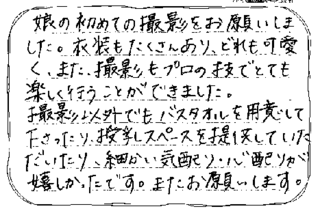 娘の初めての撮影をお願いしま
した。衣装もたくさんあり、どれも可愛
く、また、撮影もプロの技でとても
楽しく行うことができました。
撮影以外でもバスタオルを用意して
下さったり、授乳スペースを提供していた
だいたり、細かい気配り・心配りが
嬉しかったです。またお願いします。